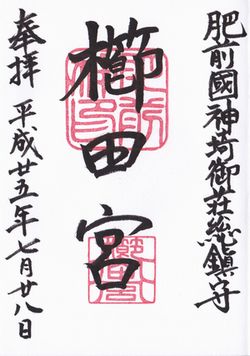 肥前國神埼御荘総鎮守
櫛田宮
奉拝 平成廿五年七月廿八日